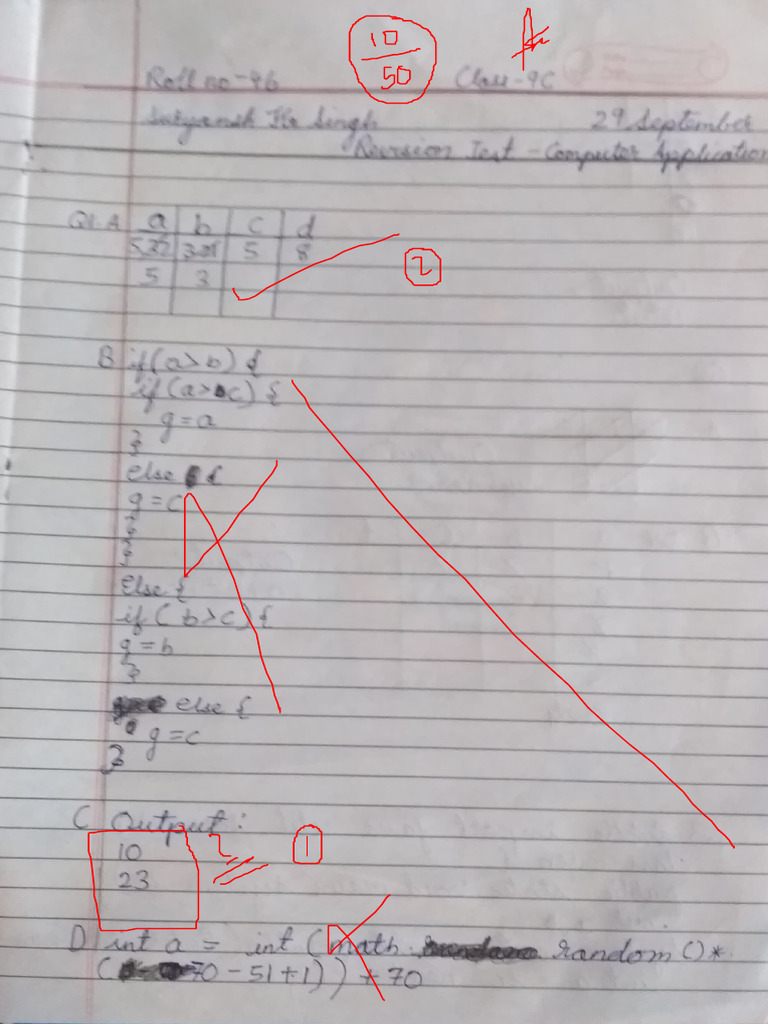 10
50
Roll no-46 Class-9C
Singh 29 September
Revision Test - Computer Application
Q1.A a b c d
5 8
5 3
2
B if(a>b) {
if(a>c) {
g=a
}
else {
g=c
}
}
Else {
if( b>c) {
g=b
}
else {
g=c
}
C Output:
10
23
1
D int a = int (math random ()*
(70-51+1)) + 70